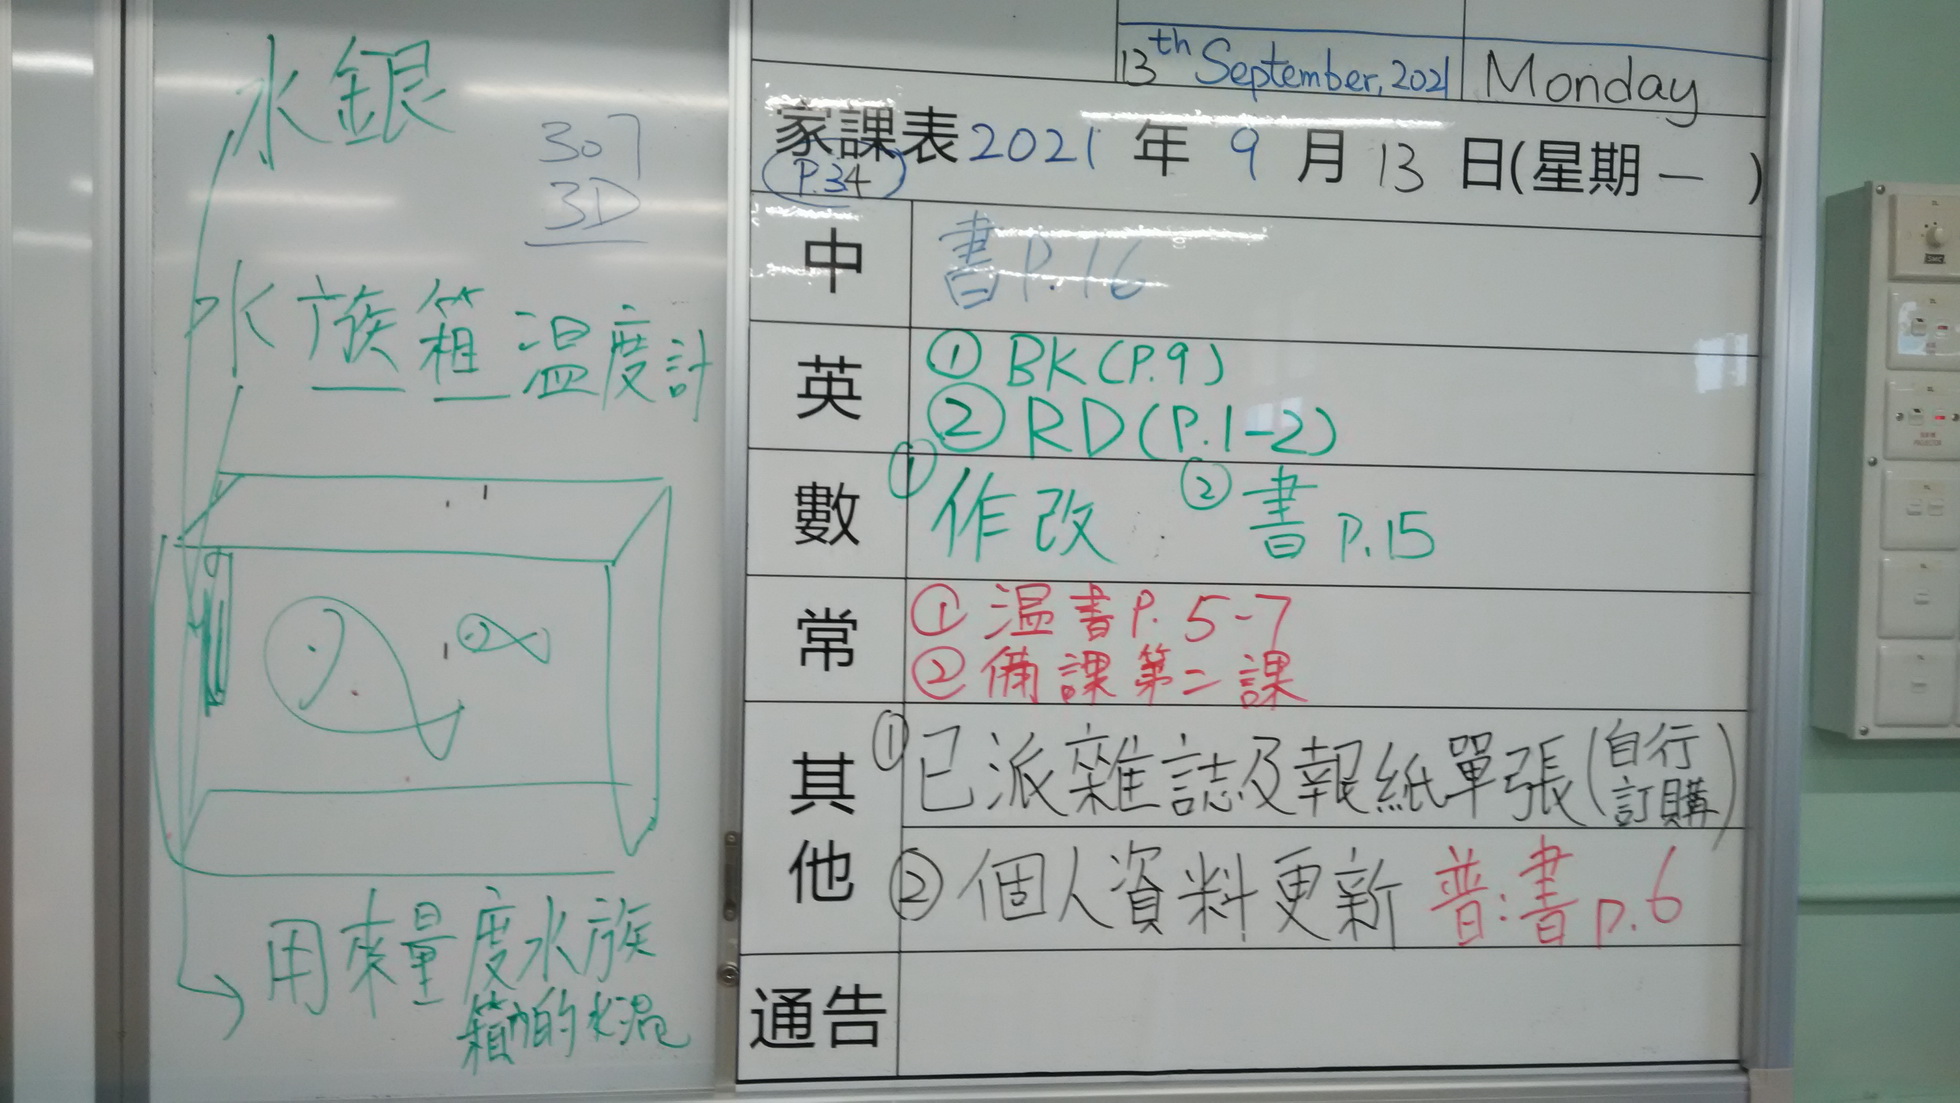 水銀
307
3D
水族箱温度計
用來量度水族
箱內的水温
13th September, 2021 Monday
家課表 2021 年 9 月 13 日(星期一)
(P.34)
中 書 P.16
英 ① BK (P.9)
② RD (P.1-2)
數 ① 作改 ② 書 P.15
常 ① 温書 P. 5-7
② 備課第二課
其他 ① 已派雜誌及報紙單張(自行訂購)
② 個人資料更新 普:書 p.6
通告